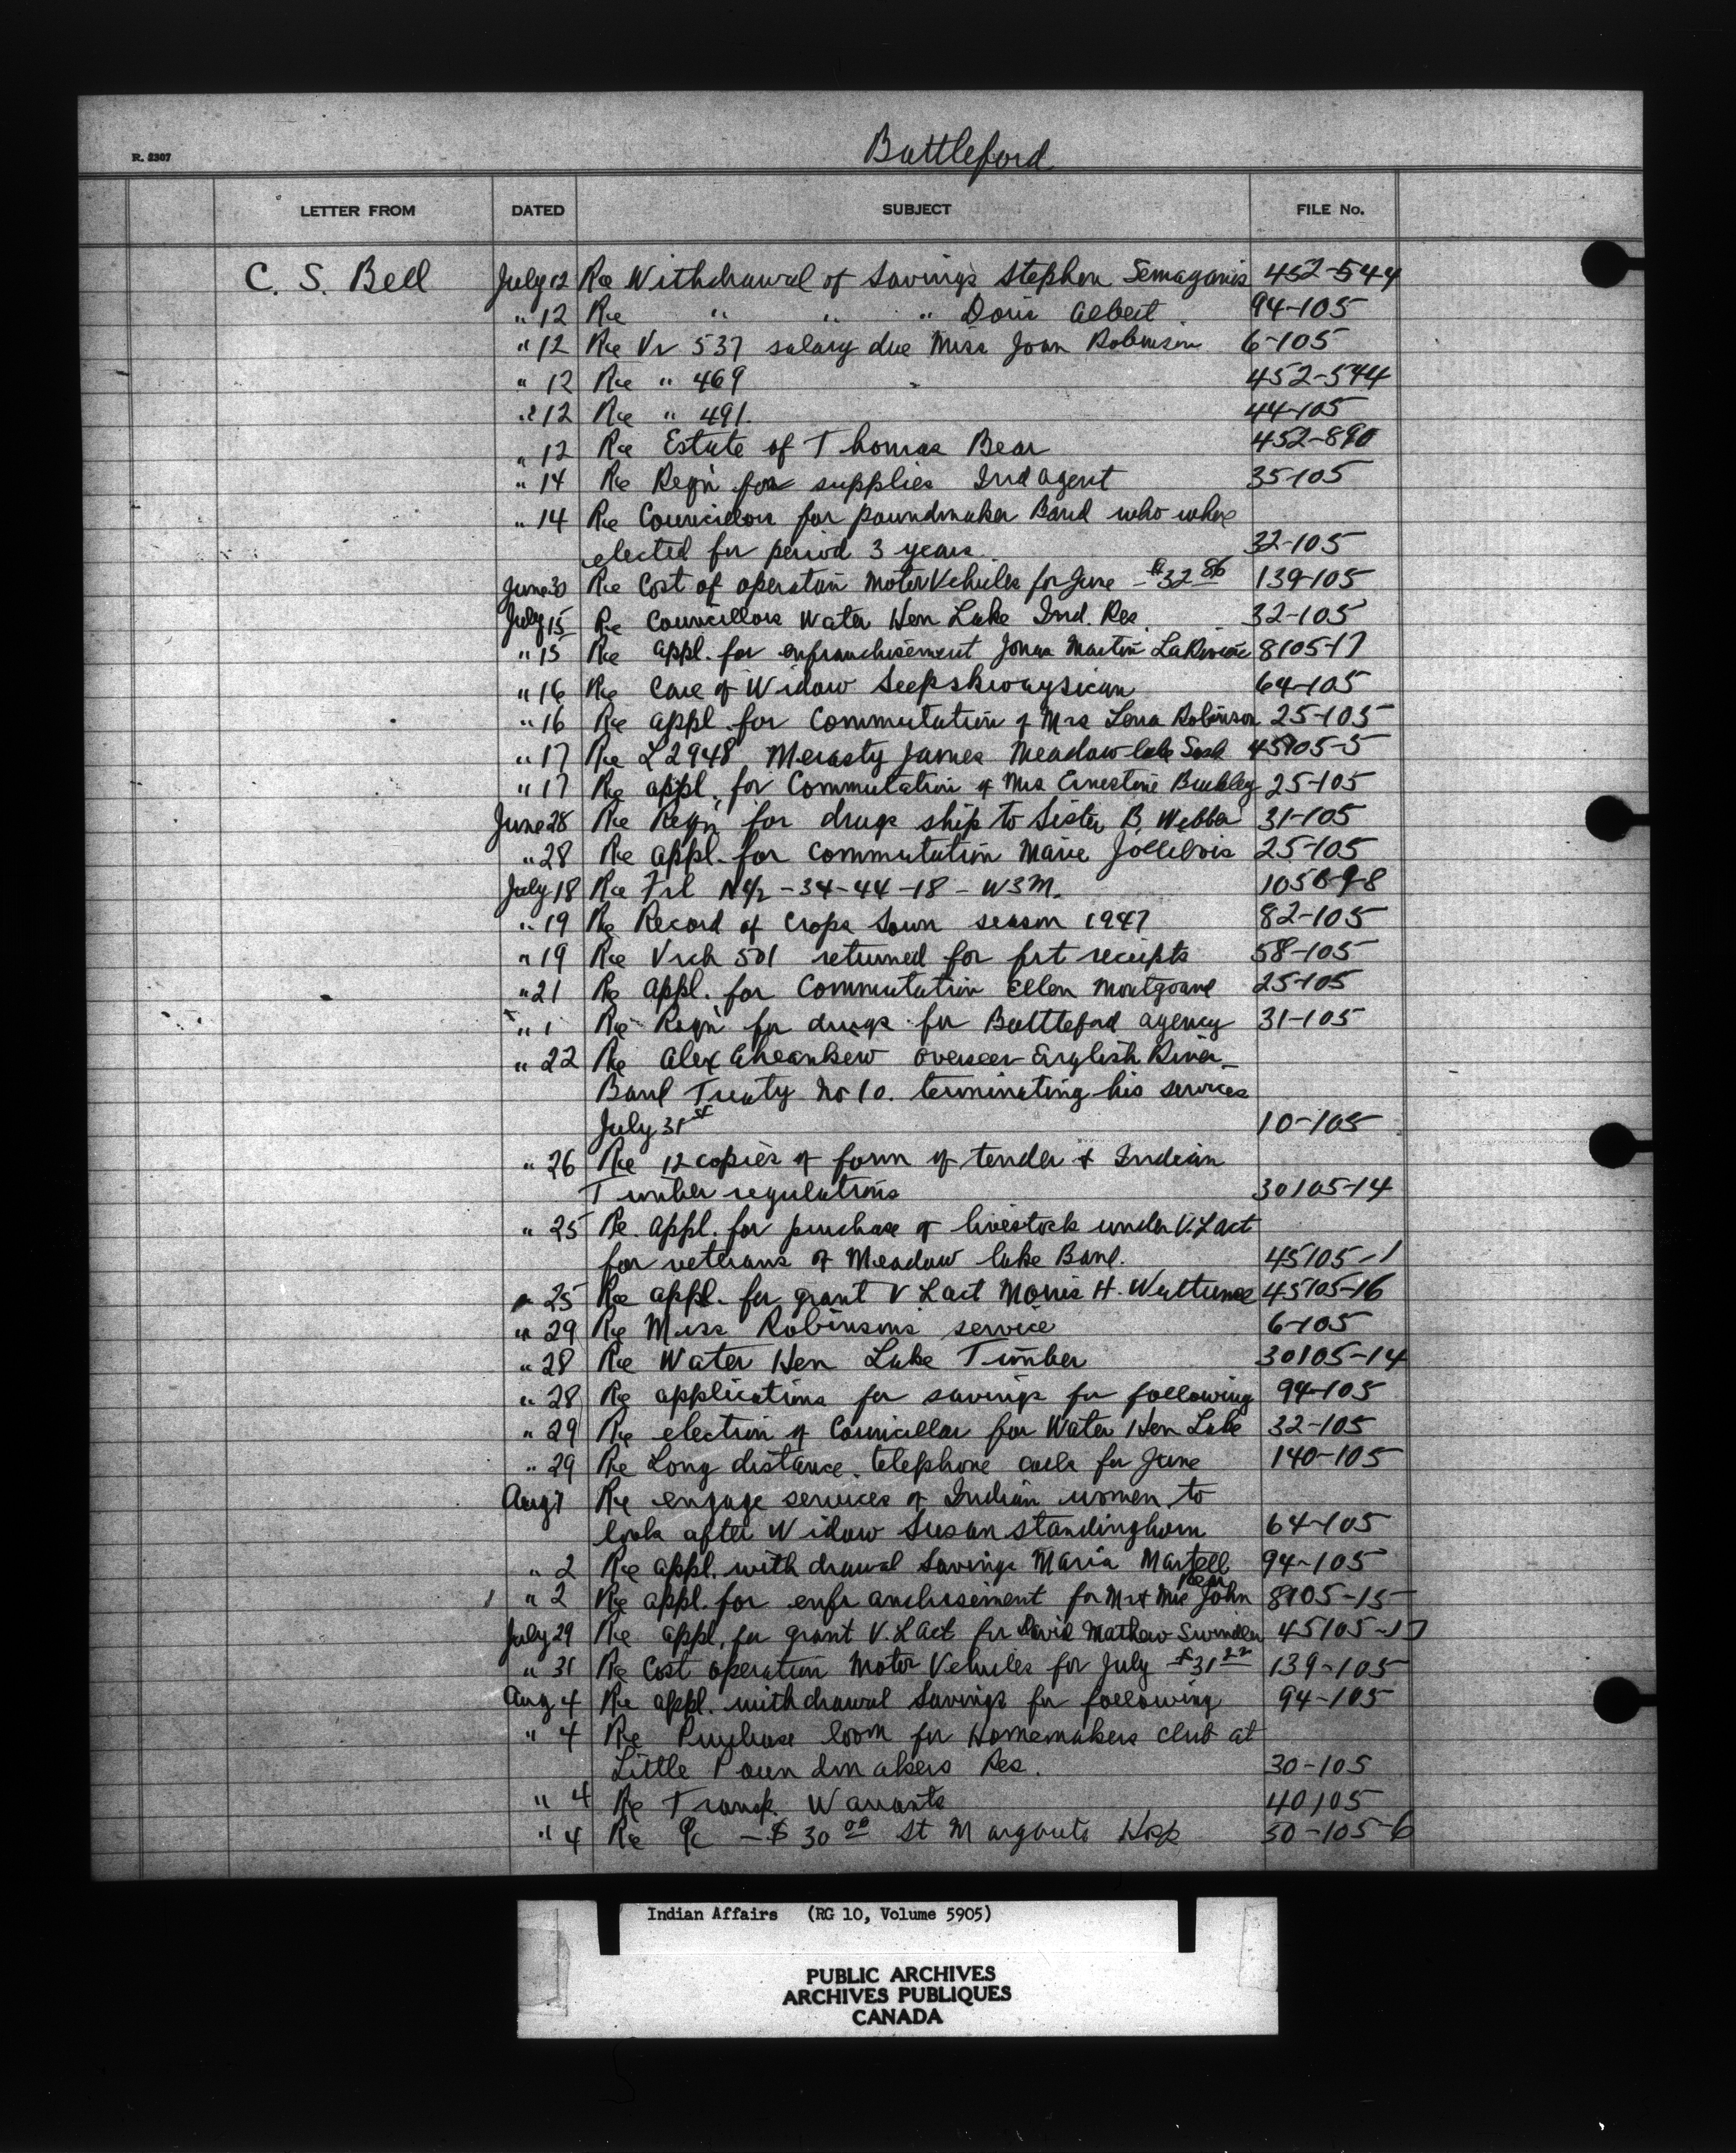 Battleford
R. 2307
LETTER FROM DATED SUBJECT FILE No.
C. S. Bell July 12 Re Withdrawal of Savings Stephen Semaganis 452-544
" 12 Re " " " Doris Albert 94-105
" 12 Re Vr 537 salary due Miss Joan Robinson 6-105
" 12 Re " 469 452-544
" 12 Re " 491. 44-105
" 12 Re Estate of Thomas Bear 452-890
" 14 Re Reqn for supplies Ind agent 35-105
" 14 Re Councidors for poundmaker Band who where
elected for period 3 years. 32-105
June 30 Re Cost of operation Motor Vehicles for June - $32 86 139-105
July 15 Re Councillors Water Hen Lake Ind. Res. 32-105
" 15 Re appl. for enfranchisement Jonas Martin 8105-17
" 16 Re Care of Widow 64-105
" 16 Re appl. for Commutation of Mrs Lena Robinson 25-105
" 17 Re L2948 Merasty James Meadow lake Sask 45105-5
" 17 Re appl. for Commutation of Mrs Ernestine 25-105
June 28 Re Reqn for drugs ship to Sister B. Webber 31-105
" 28 Re appl. for commutation Marie Jollibois 25-105
July 18 Re Frl N½ -34-44-18 - W3M. 105
" 19 Re Record of Crops Sown season 1947 82-105
" 19 Re Vrch 501 returned for frt receipts 58-105
" 21 Re appl. for Commutation Ellen Montgrand 25-105
" 1 Re Reqn for drugs for Battleford agency 31-105
" 22 Re Alex Aheankew overseer English River
Band Treaty No 10. terminating his services
July 31st 10-105
" 26 Re 12 copies of form of tender & Indian
Timber regulations 30105-14
" 25 Re. appl. for purchase of livestock under V.L act
for veterans of Meadow lake Band. 45105-1
" 25 Re appl. for grant V L act Morris H. Wuttunee 45105-16
" 29 Re Miss Robinsons service 6-105
" 28 Re Water Hen Lake Timber 30105-14
" 28 Re applications for savings for following 94-105
" 29 Re election of Councillor for Water Hen Lake 32-105
" 29 Re Long distance telephone calls for June 140-105
Aug 1 Re engage services of Indian women to
look after Widow Susan Standinghorn 64-105
" 2 Re appl. with drawal Savings Maria Martell 94-105
" 2 Re appl. for enfranchisement for Mr & Mrs John 8105-15
July 29 Re appl. for grant V. L Act for David Mathew 45105-17
" 31 Re Cost operation Motor Vehicles for July - $31 22 139-105
Aug 4 Re appl. withdrawal Savings for following 94-105
" 4 Re Purchase loom for Homemakers club at
Little Poundmakers Res. 30-105
" 4 Re Transp. Warrants 40105
" 4 Re - $ 30 00 St Margarets Hosp 50-105-6
Indian Affairs (RG 10, Volume 5905)
PUBLIC ARCHIVES
ARCHIVES PUBLIQUES
CANADA